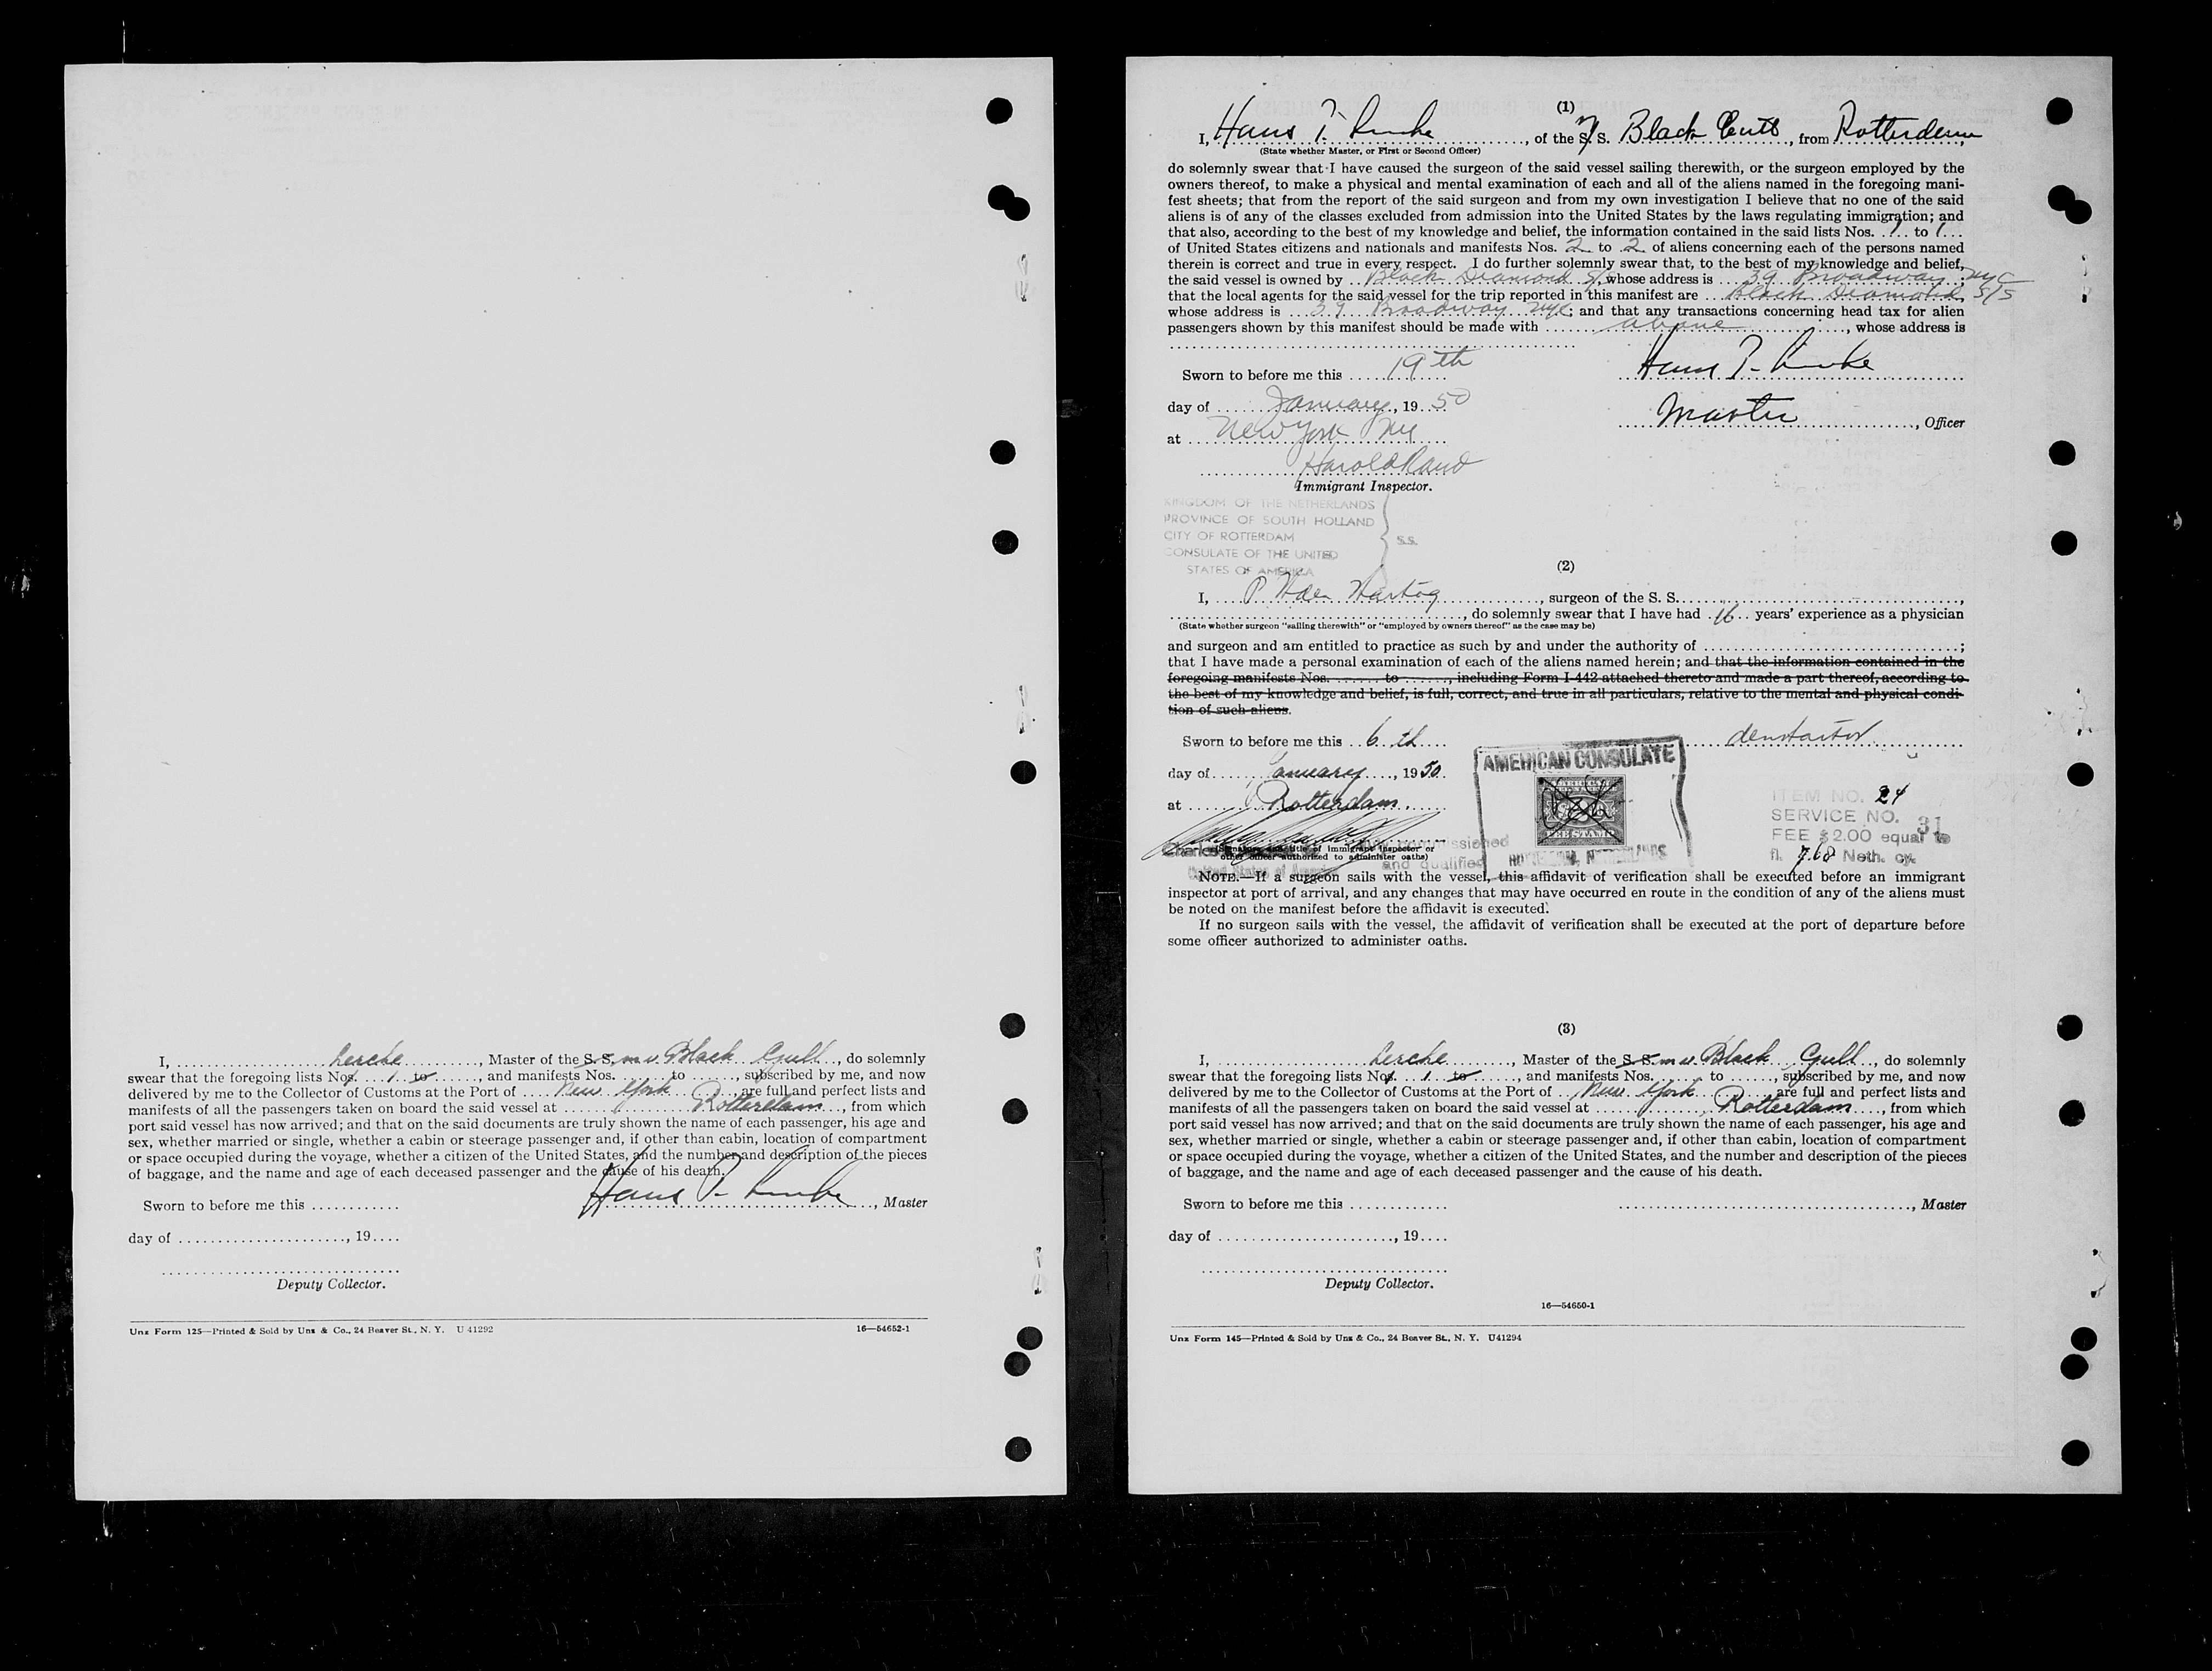 I, Lerche, Master of the S. S. m v. Black Gull, do solemnly
swear that the foregoing lists Nos. 1 to ......, and manifests Nos. ...... to ......, subscribed by me, and now
delivered by me to the Collector of Customs at the Port of New York are full and perfect lists and
manifests of all the passengers taken on board the said vessel at Rotterdam, from which
port said vessel has now arrived; and that on the said documents are truly shown the name of each passenger, his age and
sex, whether married or single, whether a cabin or steerage passenger and, if other than cabin, location of compartment
or space occupied during the voyage, whether a citizen of the United States, and the number and description of the pieces
of baggage, and the name and age of each deceased passenger and the cause of his death.
Sworn to before me this ............ Hans P. Lerche, Master
day of ......................, 19....
Deputy Collector.
Unz Form 125—Printed & Sold by Unz & Co., 24 Beaver St., N. Y. U 41292 16—54652-1
(1)
I, Hans P. Lerche, of the S. S. Black Gull, from Rotterdam,
(State whether Master, or First or Second Officer)
do solemnly swear that I have caused the surgeon of the said vessel sailing therewith, or the surgeon employed by the
owners thereof, to make a physical and mental examination of each and all of the aliens named in the foregoing mani-
fest sheets; that from the report of the said surgeon and from my own investigation I believe that no one of the said
aliens is of any of the classes excluded from admission into the United States by the laws regulating immigration; and
that also, according to the best of my knowledge and belief, the information contained in the said lists Nos. 1 to 1
of United States citizens and nationals and manifests Nos. 2 to 2 of aliens concerning each of the persons named
therein is correct and true in every respect. I do further solemnly swear that, to the best of my knowledge and belief,
the said vessel is owned by Black Diamond S/S whose address is 39 Broadway NYC;
that the local agents for the said vessel for the trip reported in this manifest are Black Diamond S/S
whose address is 39 Broadway NYC; and that any transactions concerning head tax for alien
passengers shown by this manifest should be made with above, whose address is
Sworn to before me this 19th Hans P. Lerche
day of January, 1950 Master, Officer
at New York NY
Harold Rand
Immigrant Inspector.
KINGDOM OF THE NETHERLANDS
PROVINCE OF SOUTH HOLLAND
CITY OF ROTTERDAM S.S.
CONSULATE OF THE UNITED
STATES OF AMERICA
(2)
I, P. H den Hartog, surgeon of the S. S.
, do solemnly swear that I have had 16 years' experience as a physician
(State whether surgeon "sailing therewith" or "employed by owners thereof" as the case may be)
and surgeon and am entitled to practice as such by and under the authority of ;
that I have made a personal examination of each of the aliens named herein; and that the information contained in the
foregoing manifests Nos. ...... to ......, including Form I-442 attached thereto and made a part thereof, according to
the best of my knowledge and belief, is full, correct, and true in all particulars, relative to the mental and physical condi-
tion of such aliens.
Sworn to before me this 6 th denHartog
day of January, 1950.
at Rotterdam
AMERICAN CONSULATE
FEE STAMP
ROTTERDAM, NETHERLANDS
ITEM NO. 24
SERVICE NO. 31
FEE $2.00 equal to
fl. 7.68 Neth. cy.
Charles commissioned
(Signature and title of Immigrant Inspector or
other officer authorized to administer oaths) and qualified
United States of America
NOTE.—If a surgeon sails with the vessel, this affidavit of verification shall be executed before an immigrant
inspector at port of arrival, and any changes that may have occurred en route in the condition of any of the aliens must
be noted on the manifest before the affidavit is executed.
If no surgeon sails with the vessel, the affidavit of verification shall be executed at the port of departure before
some officer authorized to administer oaths.
(3)
I, Lerche, Master of the S. S. m v. Black Gull, do solemnly
swear that the foregoing lists Nos. 1 to ......, and manifests Nos. ...... to ......, subscribed by me, and now
delivered by me to the Collector of Customs at the Port of New York are full and perfect lists and
manifests of all the passengers taken on board the said vessel at Rotterdam, from which
port said vessel has now arrived; and that on the said documents are truly shown the name of each passenger, his age and
sex, whether married or single, whether a cabin or steerage passenger and, if other than cabin, location of compartment
or space occupied during the voyage, whether a citizen of the United States, and the number and description of the pieces
of baggage, and the name and age of each deceased passenger and the cause of his death.
Sworn to before me this ............ , Master
day of ......................, 19....
Deputy Collector.
16—54650-1
Unz Form 145—Printed & Sold by Unz & Co., 24 Beaver St., N. Y. U41294